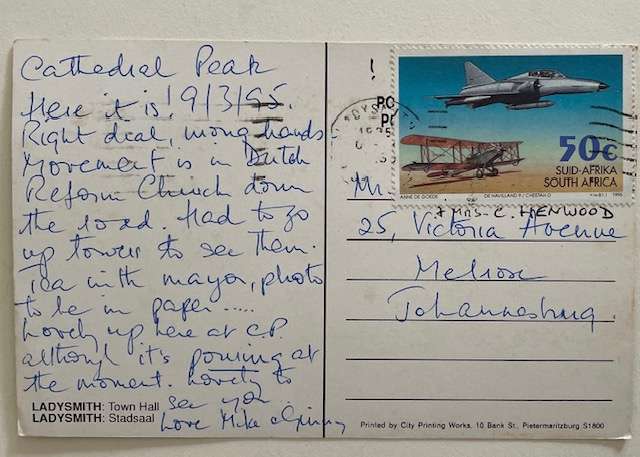 Cathedral Peak
Here it is! 9/3/95.
Right dial, wrong hands
Movement is in Dutch
Reform Church down
the road. Had to go
up tower to see them.
Tea with mayor, photo
to be in paper .....
Lovely up here at C.P.
although it's pouring at
the moment. Lovely to
see you.
Love Mike & Ginny
LADYSMITH: Town Hall
LADYSMITH: Stadsaal
!
50c
SUID-AFRIKA
SOUTH AFRICA
ANNE DE GOEDE
DE HAVILLAND 9 / CHEETAH D
1995
& Mrs C. HENWOOD
25, Victoria Avenue
Melrose
Johannesburg.
Printed by City Printing Works, 10 Bank St., Pietermaritzburg S1800